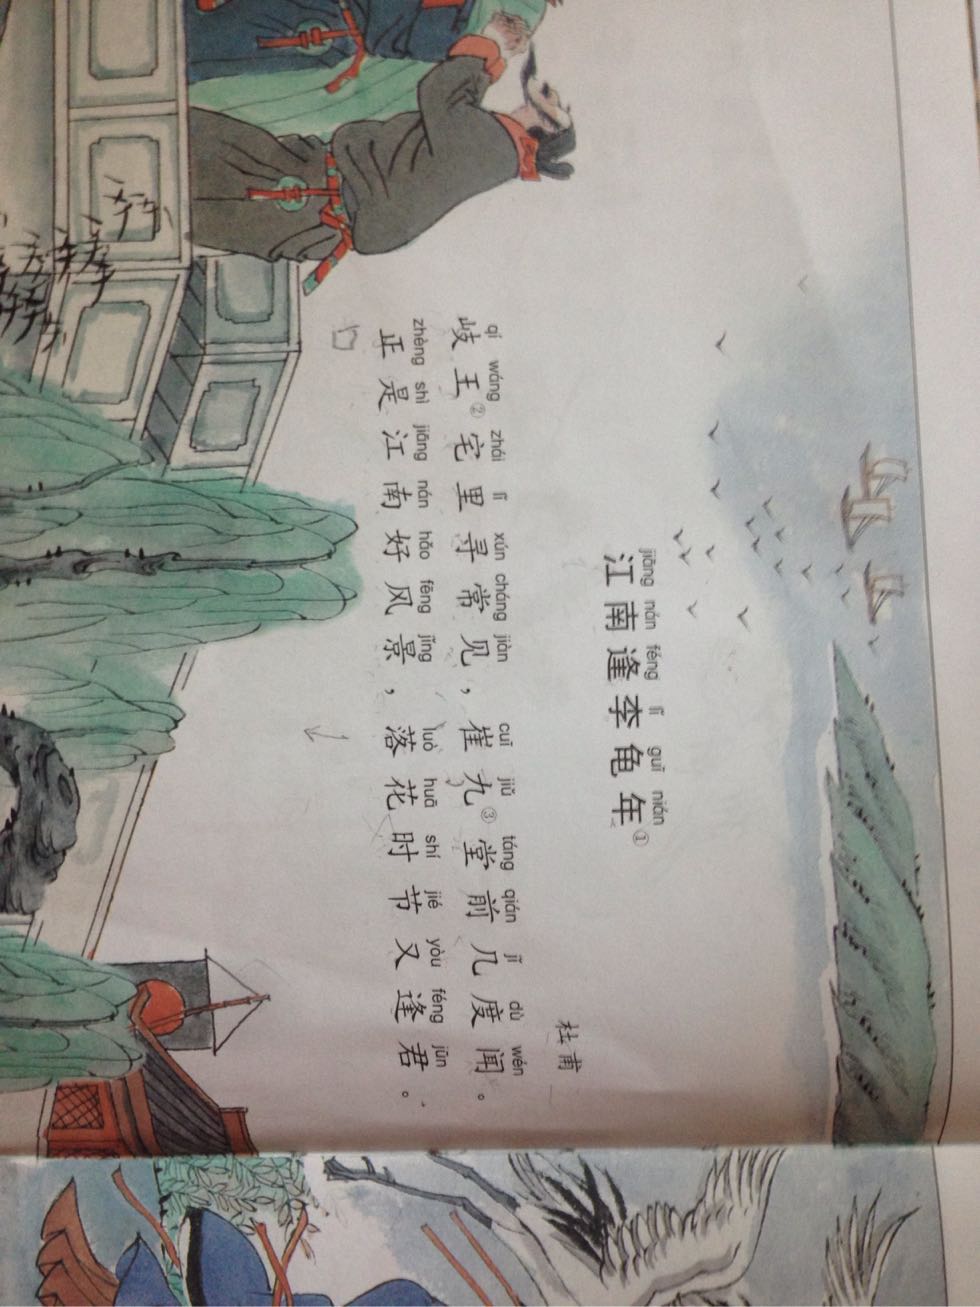 jiāng nán féng lǐ guī nián
江南逢李龟年①
杜甫
qí wáng zhái lǐ xún cháng jiàn cuī jiǔ táng qián jǐ dù wén
岐王②宅里寻常见，崔九③堂前几度闻。
zhèng shì jiāng nán hǎo fēng jǐng luò huā shí jié yòu féng jūn
正是江南好风景，落花时节又逢君。